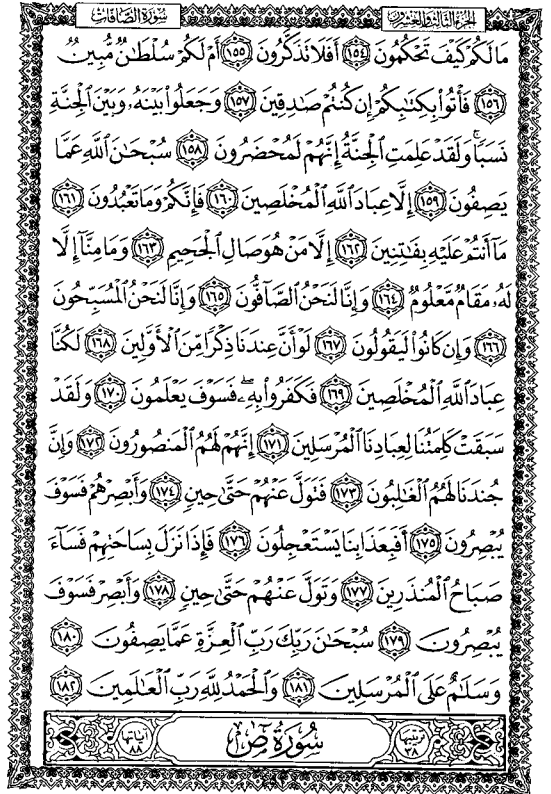 سُورَةُ الصَّافَّاتِ
الجزء الثالث والعشرون
مَا لَكُمْ كَيْفَ تَحْكُمُونَ ١٥٤ أَفَلَا تَذَكَّرُونَ ١٥٥ أَمْ لَكُمْ سُلْطَانٌ مُّبِينٌ
١٥٦ فَأْتُوا بِكِتَابِكُمْ إِن كُنتُمْ صَادِقِينَ ١٥٧ وَجَعَلُوا بَيْنَهُ وَبَيْنَ الْجِنَّةِ
نَسَبًا وَلَقَدْ عَلِمَتِ الْجِنَّةُ إِنَّهُمْ لَمُحْضَرُونَ ١٥٨ سُبْحَانَ اللَّهِ عَمَّا
يَصِفُونَ ١٥٩ إِلَّا عِبَادَ اللَّهِ الْمُخْلَصِينَ ١٦٠ فَإِنَّكُمْ وَمَا تَعْبُدُونَ ١٦١
مَا أَنتُمْ عَلَيْهِ بِفَاتِنِينَ ١٦٢ إِلَّا مَنْ هُوَ صَالِ الْجَحِيمِ ١٦٣ وَمَا مِنَّا إِلَّا
لَهُ مَقَامٌ مَّعْلُومٌ ١٦٤ وَإِنَّا لَنَحْنُ الصَّافُّونَ ١٦٥ وَإِنَّا لَنَحْنُ الْمُسَبِّحُونَ
١٦٦ وَإِن كَانُوا لَيَقُولُونَ ١٦٧ لَوْ أَنَّ عِندَنَا ذِكْرًا مِّنَ الْأَوَّلِينَ ١٦٨ لَكُنَّا
عِبَادَ اللَّهِ الْمُخْلَصِينَ ١٦٩ فَكَفَرُوا بِهِ فَسَوْفَ يَعْلَمُونَ ١٧٠ وَلَقَدْ
سَبَقَتْ كَلِمَتُنَا لِعِبَادِنَا الْمُرْسَلِينَ ١٧١ إِنَّهُمْ لَهُمُ الْمَنصُورُونَ ١٧٢ وَإِنَّ
جُندَنَا لَهُمُ الْغَالِبُونَ ١٧٣ فَتَوَلَّ عَنْهُمْ حَتَّى حِينٍ ١٧٤ وَأَبْصِرْهُمْ فَسَوْفَ
يُبْصِرُونَ ١٧٥ أَفَبِعَذَابِنَا يَسْتَعْجِلُونَ ١٧٦ فَإِذَا نَزَلَ بِسَاحَتِهِمْ فَسَاءَ
صَبَاحُ الْمُنذَرِينَ ١٧٧ وَتَوَلَّ عَنْهُمْ حَتَّى حِينٍ ١٧٨ وَأَبْصِرْ فَسَوْفَ
يُبْصِرُونَ ١٧٩ سُبْحَانَ رَبِّكَ رَبِّ الْعِزَّةِ عَمَّا يَصِفُونَ ١٨٠
وَسَلَامٌ عَلَى الْمُرْسَلِينَ ١٨١ وَالْحَمْدُ لِلَّهِ رَبِّ الْعَالَمِينَ ١٨٢
ترتيبها ٣٨ سُورَةُ صٓ آياتها ٨٨